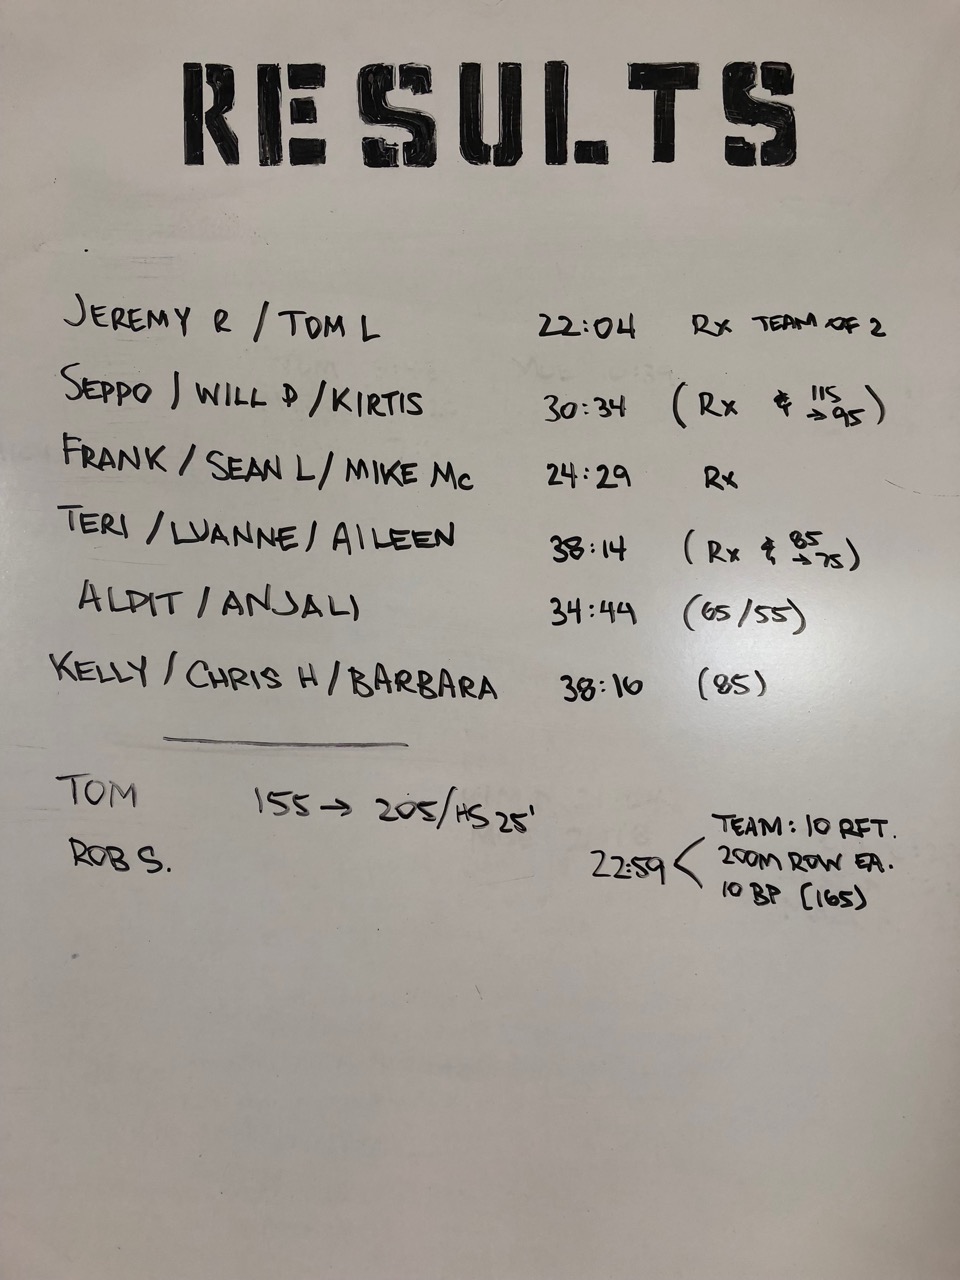 RESULTS
JEREMY R / TOM L 22:04 Rx TEAM OF 2
SEPPO / WILL D / KIRTIS 30:34 (Rx & 115 → 95)
FRANK / SEAN L / MIKE Mc 24:29 Rx
TERI / LUANNE / AILEEN 38:14 (Rx & 85 → 75)
ALDIT / ANJALI 34:44 (65/55)
KELLY / CHRIS H / BARBARA 38:16 (85)
TOM 155 → 205/HS 25'
ROB S. 22:59 < TEAM: 10 RFT.
200M ROW EA.
10 BP (165)